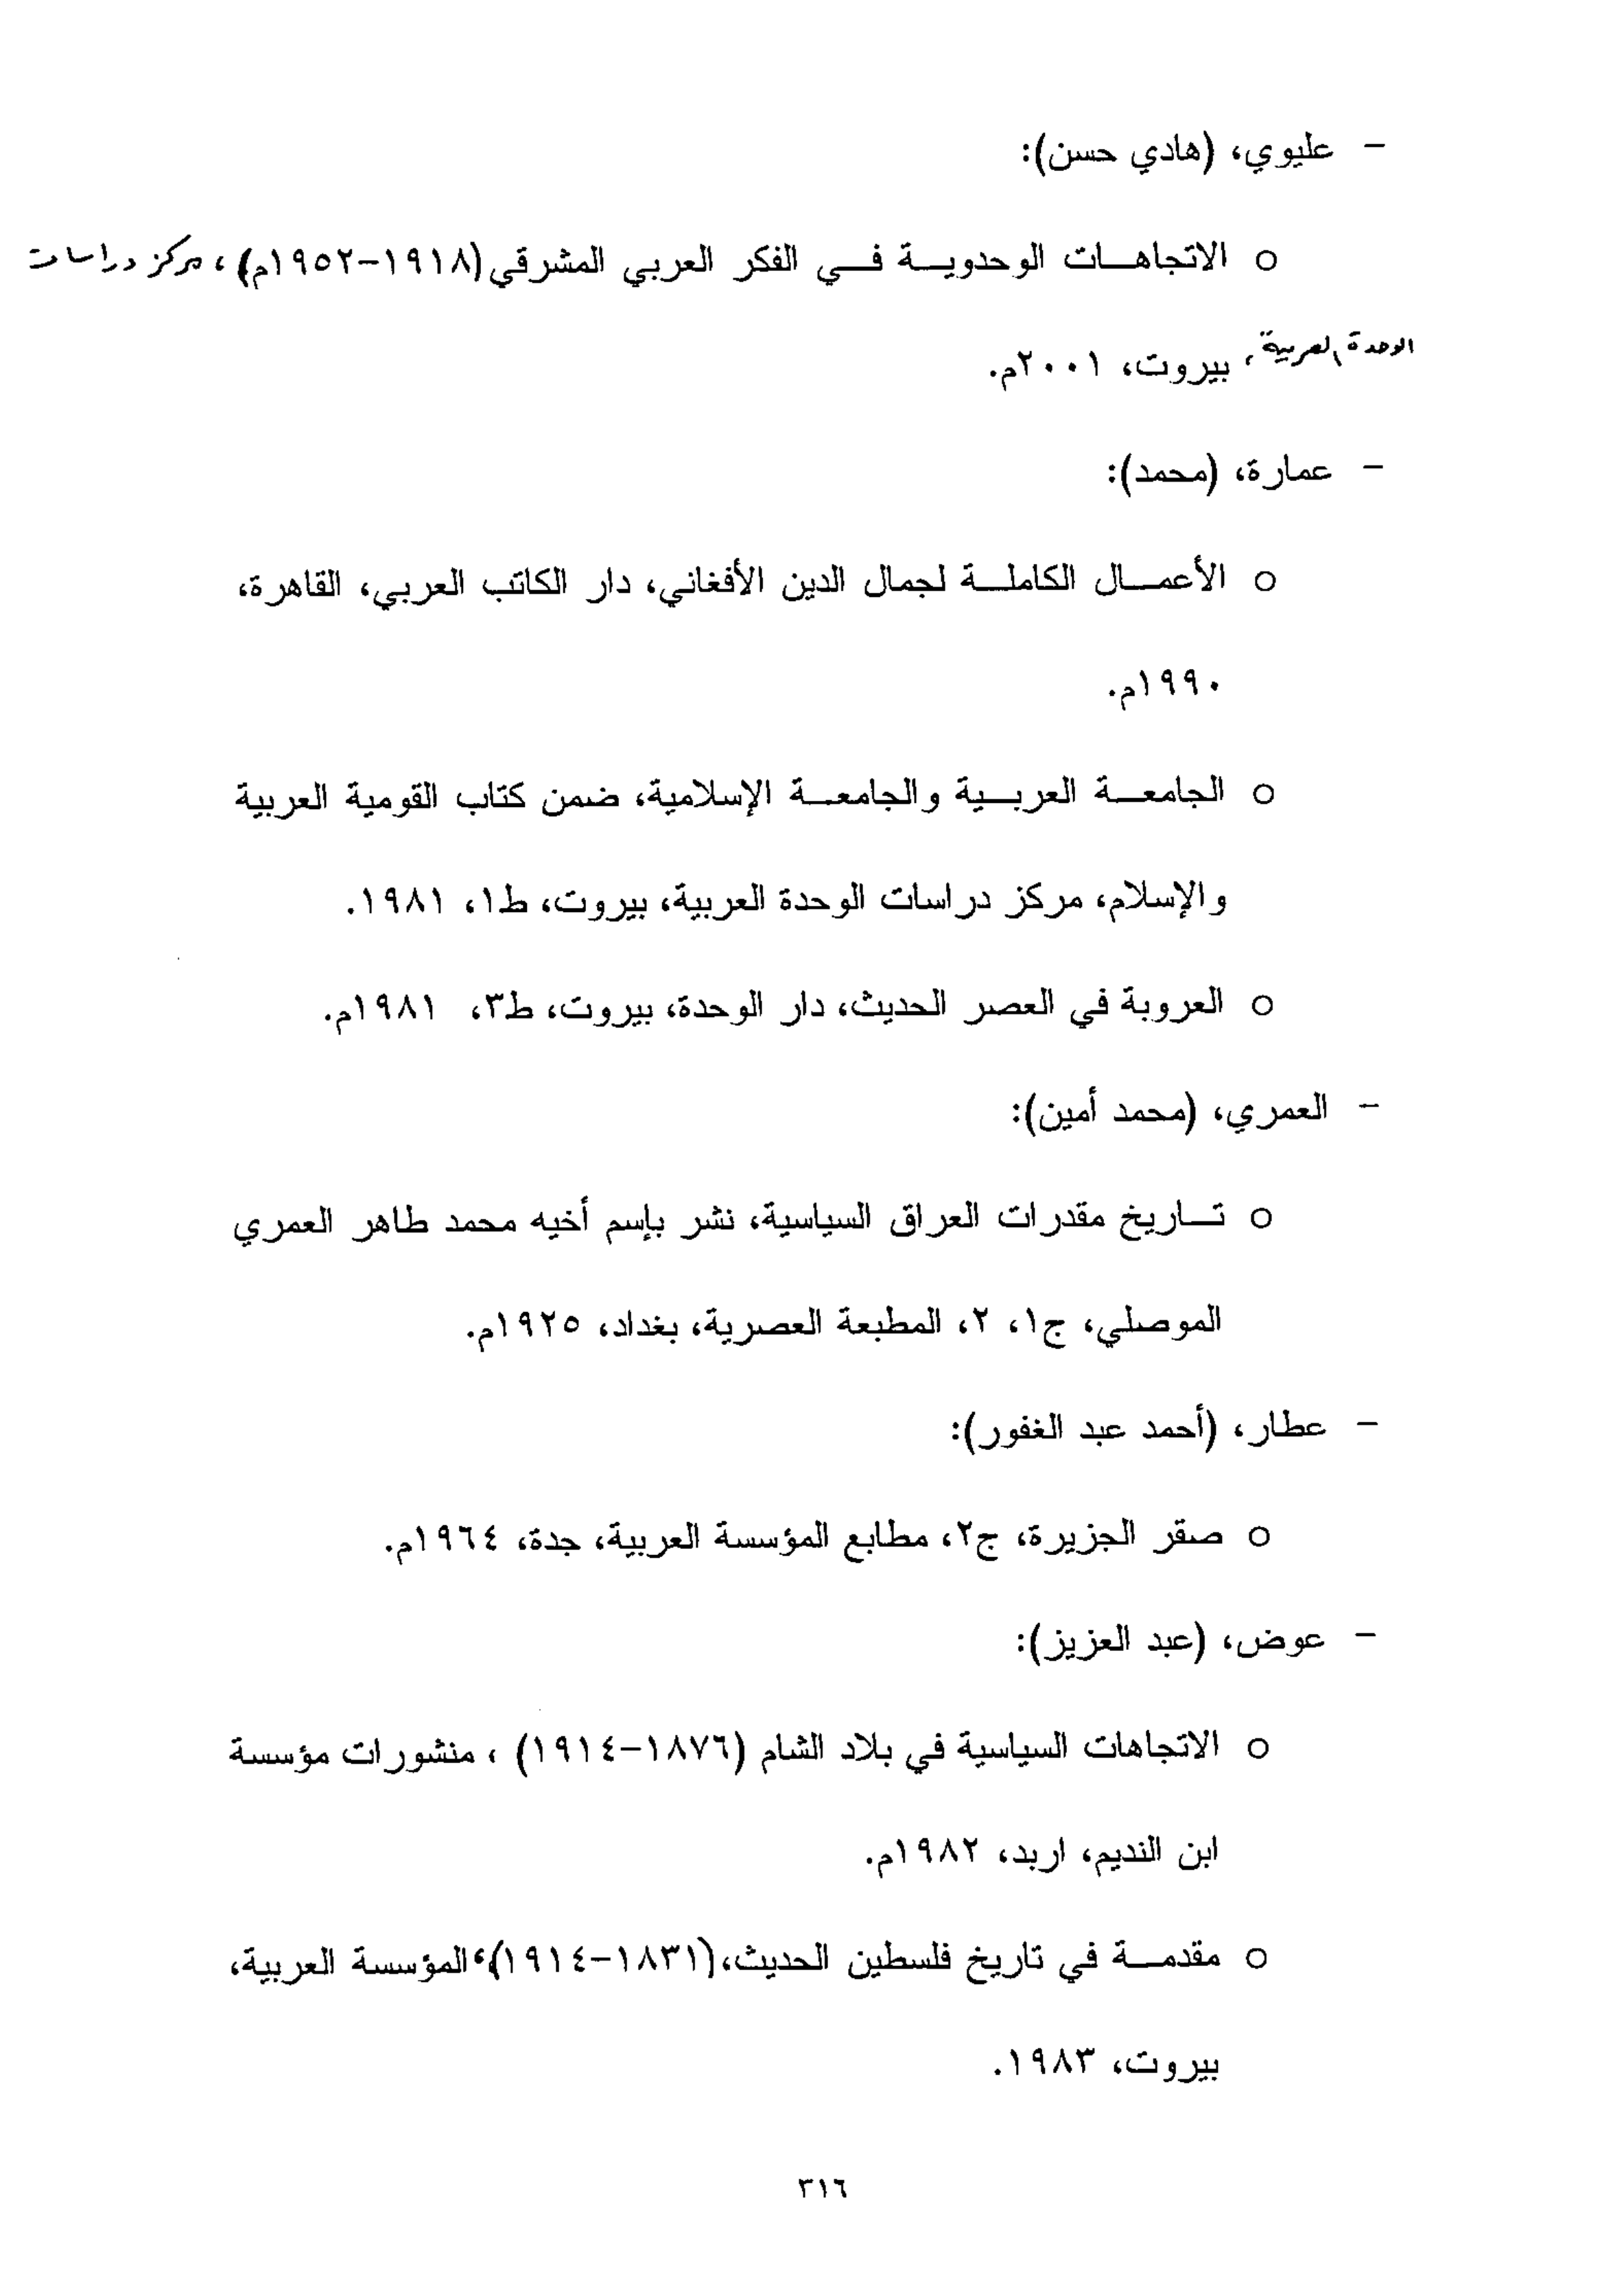 - عليوي، (هادي حسن):
o الاتجاهات الوحدوية في الفكر العربي المشرقي (١٩١٨-١٩٥٢م)، مركز دراسات
الوحدة العربية، بيروت، ٢٠٠١م.
- عمارة، (محمد):
o الأعمال الكاملة لجمال الدين الأفغاني، دار الكاتب العربي، القاهرة،
١٩٩٠م.
o الجامعة العربية والجامعة الإسلامية، ضمن كتاب القومية العربية
والإسلام، مركز دراسات الوحدة العربية، بيروت، ط١، ١٩٨١.
o العروبة في العصر الحديث، دار الوحدة، بيروت، ط٣، ١٩٨١م.
- العمري، (محمد أمين):
o تاريخ مقدرات العراق السياسية، نشر بإسم أخيه محمد طاهر العمري
الموصلي، ج١، ٢، المطبعة العصرية، بغداد، ١٩٢٥م.
- عطار، (أحمد عبد الغفور):
o صقر الجزيرة، ج٢، مطابع المؤسسة العربية، جدة، ١٩٦٤م.
- عوض، (عبد العزيز):
o الاتجاهات السياسية في بلاد الشام (١٨٧٦-١٩١٤) ، منشورات مؤسسة
ابن النديم، اربد، ١٩٨٢م.
o مقدمة في تاريخ فلسطين الحديث،(١٨٣١-١٩١٤)،المؤسسة العربية،
بيروت، ١٩٨٣.
٣١٦